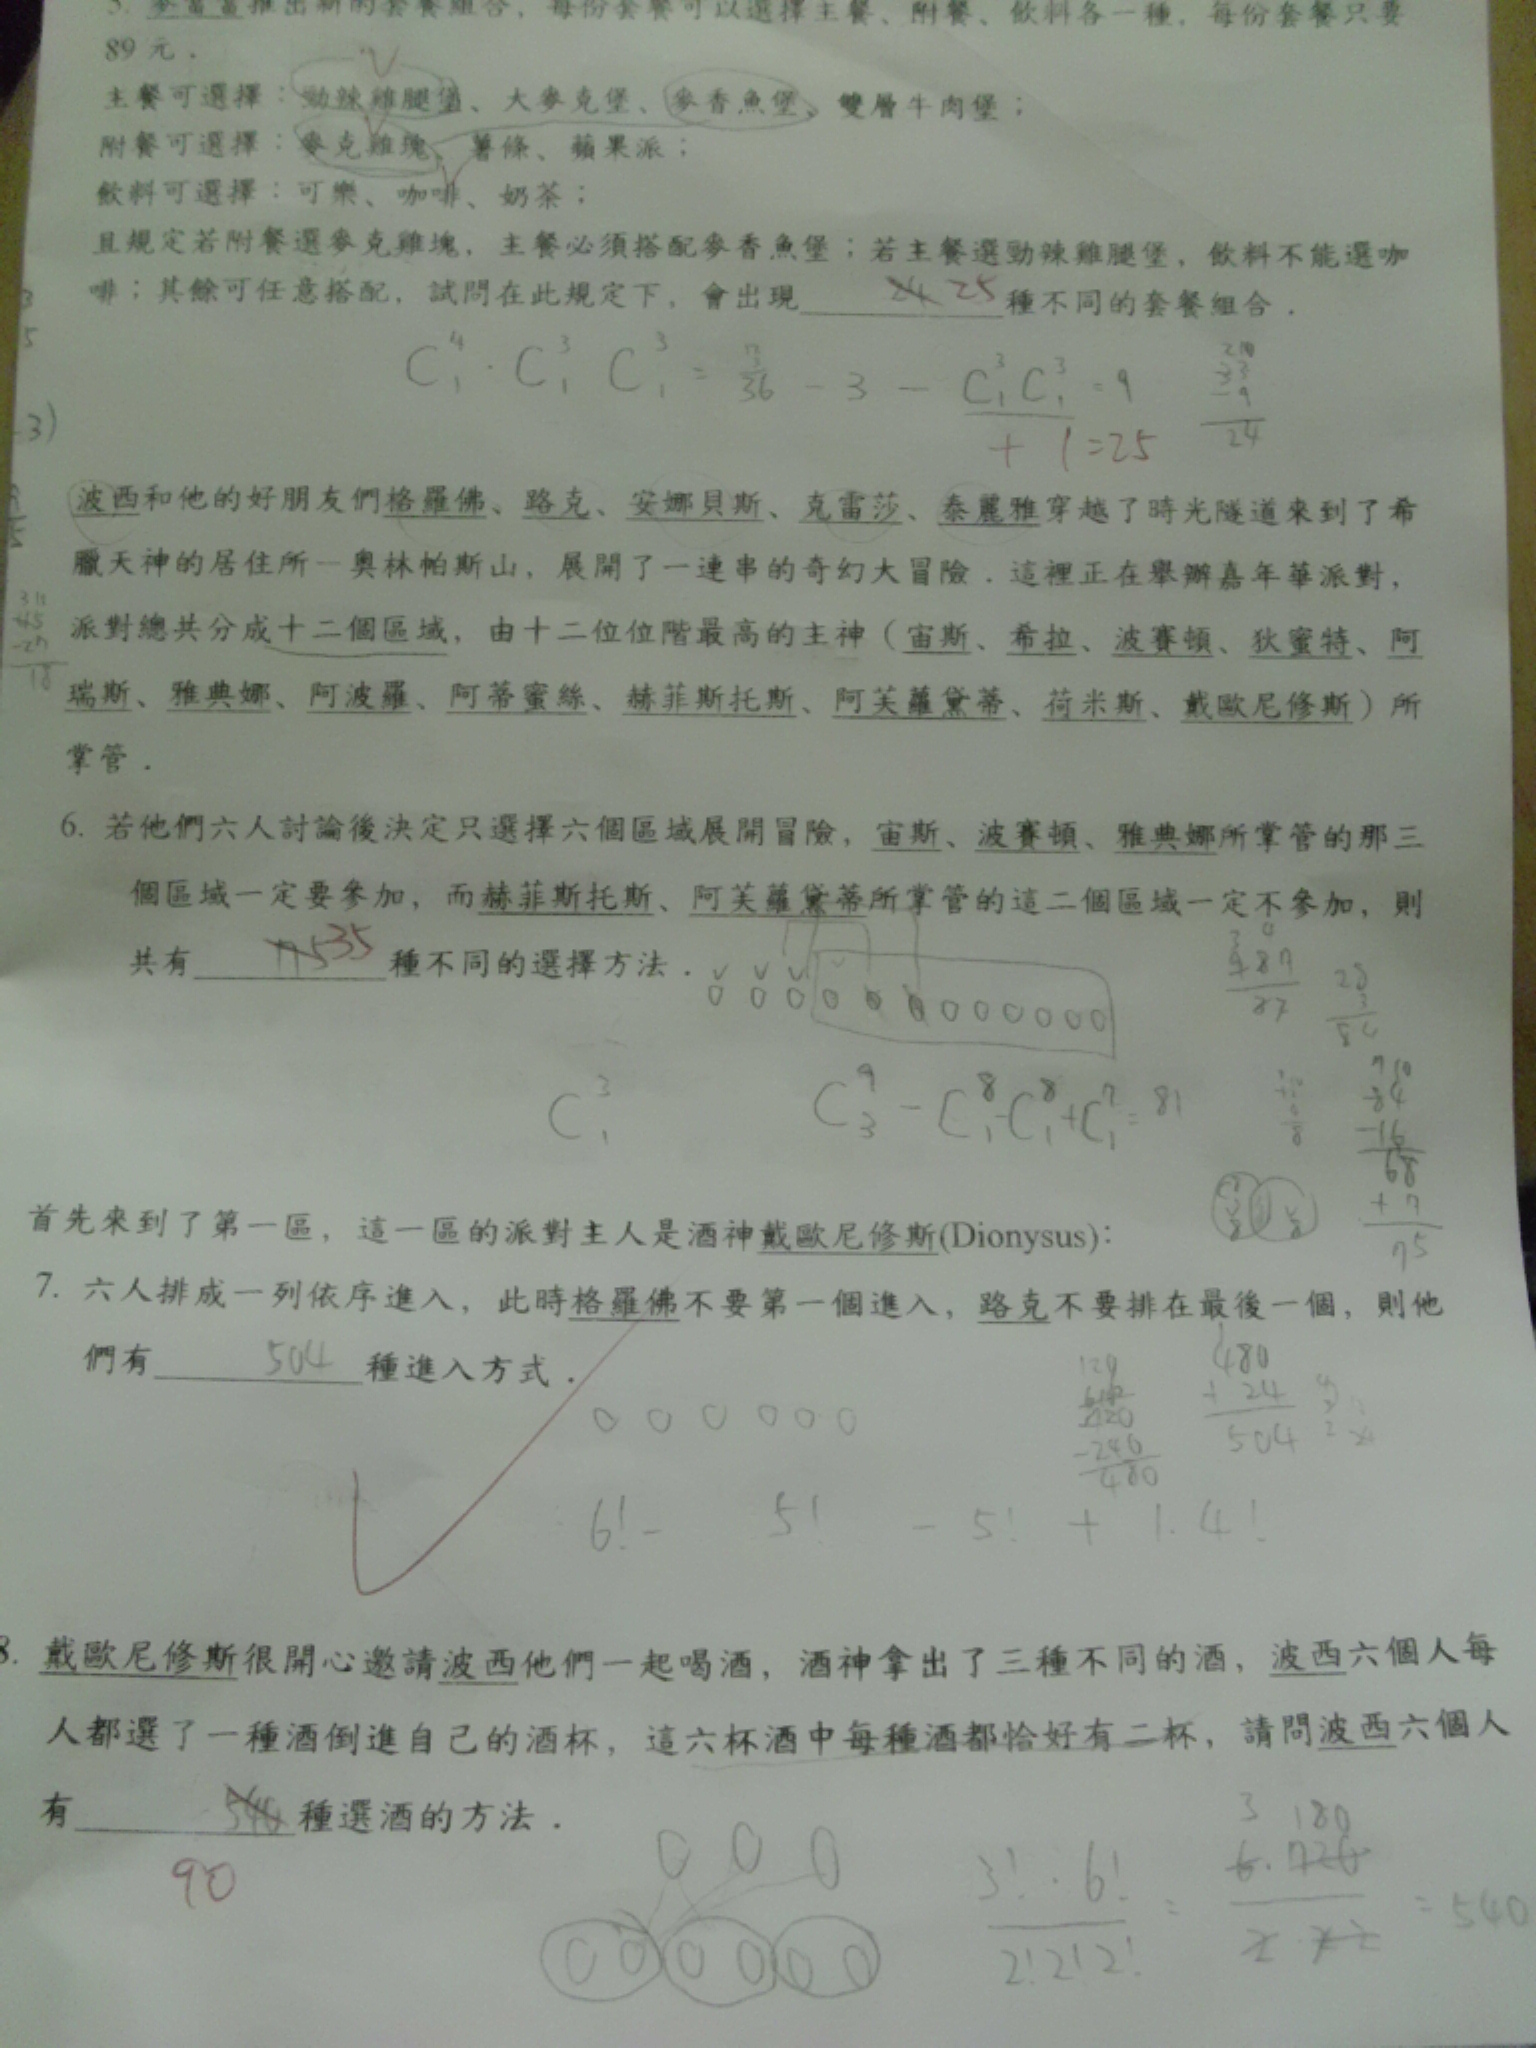 5. 麥當當推出新的套餐組合，每份套餐可以選擇主餐、附餐、飲料各一種，每份套餐只要
89元．
主餐可選擇：勁辣雞腿堡、大麥克堡、麥香魚堡、雙層牛肉堡；
附餐可選擇：麥克雞塊、薯條、蘋果派；
飲料可選擇：可樂、咖啡、奶茶；
且規定若附餐選麥克雞塊，主餐必須搭配麥香魚堡；若主餐選勁辣雞腿堡，飲料不能選咖
啡；其餘可任意搭配，試問在此規定下，會出現 24 25 種不同的套餐組合．
C⁴₁ · C³₁ C³₁ = 36 - 3 - C³₁ C³₁ = 9
+ 1 = 25
-9
24
波西和他的好朋友們格羅佛、路克、安娜貝斯、克雷莎、泰麗雅穿越了時光隧道來到了希
臘天神的居住所－奧林帕斯山，展開了一連串的奇幻大冒險．這裡正在舉辦嘉年華派對，
派對總共分成十二個區域，由十二位位階最高的主神（宙斯、希拉、波賽頓、狄蜜特、阿
瑞斯、雅典娜、阿波羅、阿蒂蜜絲、赫菲斯托斯、阿芙蘿黛蒂、荷米斯、戴歐尼修斯）所
掌管．
6. 若他們六人討論後決定只選擇六個區域展開冒險，宙斯、波賽頓、雅典娜所掌管的那三
個區域一定要參加，而赫菲斯托斯、阿芙蘿黛蒂所掌管的這二個區域一定不參加，則
共有 75 35 種不同的選擇方法．
C³₁ C⁹₃ - C⁸₁ - C⁸₁ + C⁷₁ = 81
28
3
84
-16
68
+ 7
75
首先來到了第一區，這一區的派對主人是酒神戴歐尼修斯(Dionysus)：
7. 六人排成一列依序進入，此時格羅佛不要第一個進入，路克不要排在最後一個，則他
們有 504 種進入方式．
720
-240
480
480
+ 24
504
6! - 5! - 5! + 1·4!
8. 戴歐尼修斯很開心邀請波西他們一起喝酒，酒神拿出了三種不同的酒，波西六個人每
人都選了一種酒倒進自己的酒杯，這六杯酒中每種酒都恰好有二杯，請問波西六個人
有 540 種選酒的方法．
90
3! · 6! / 2!2!2! = 6·720 / 2·2·2 = 540
3 180